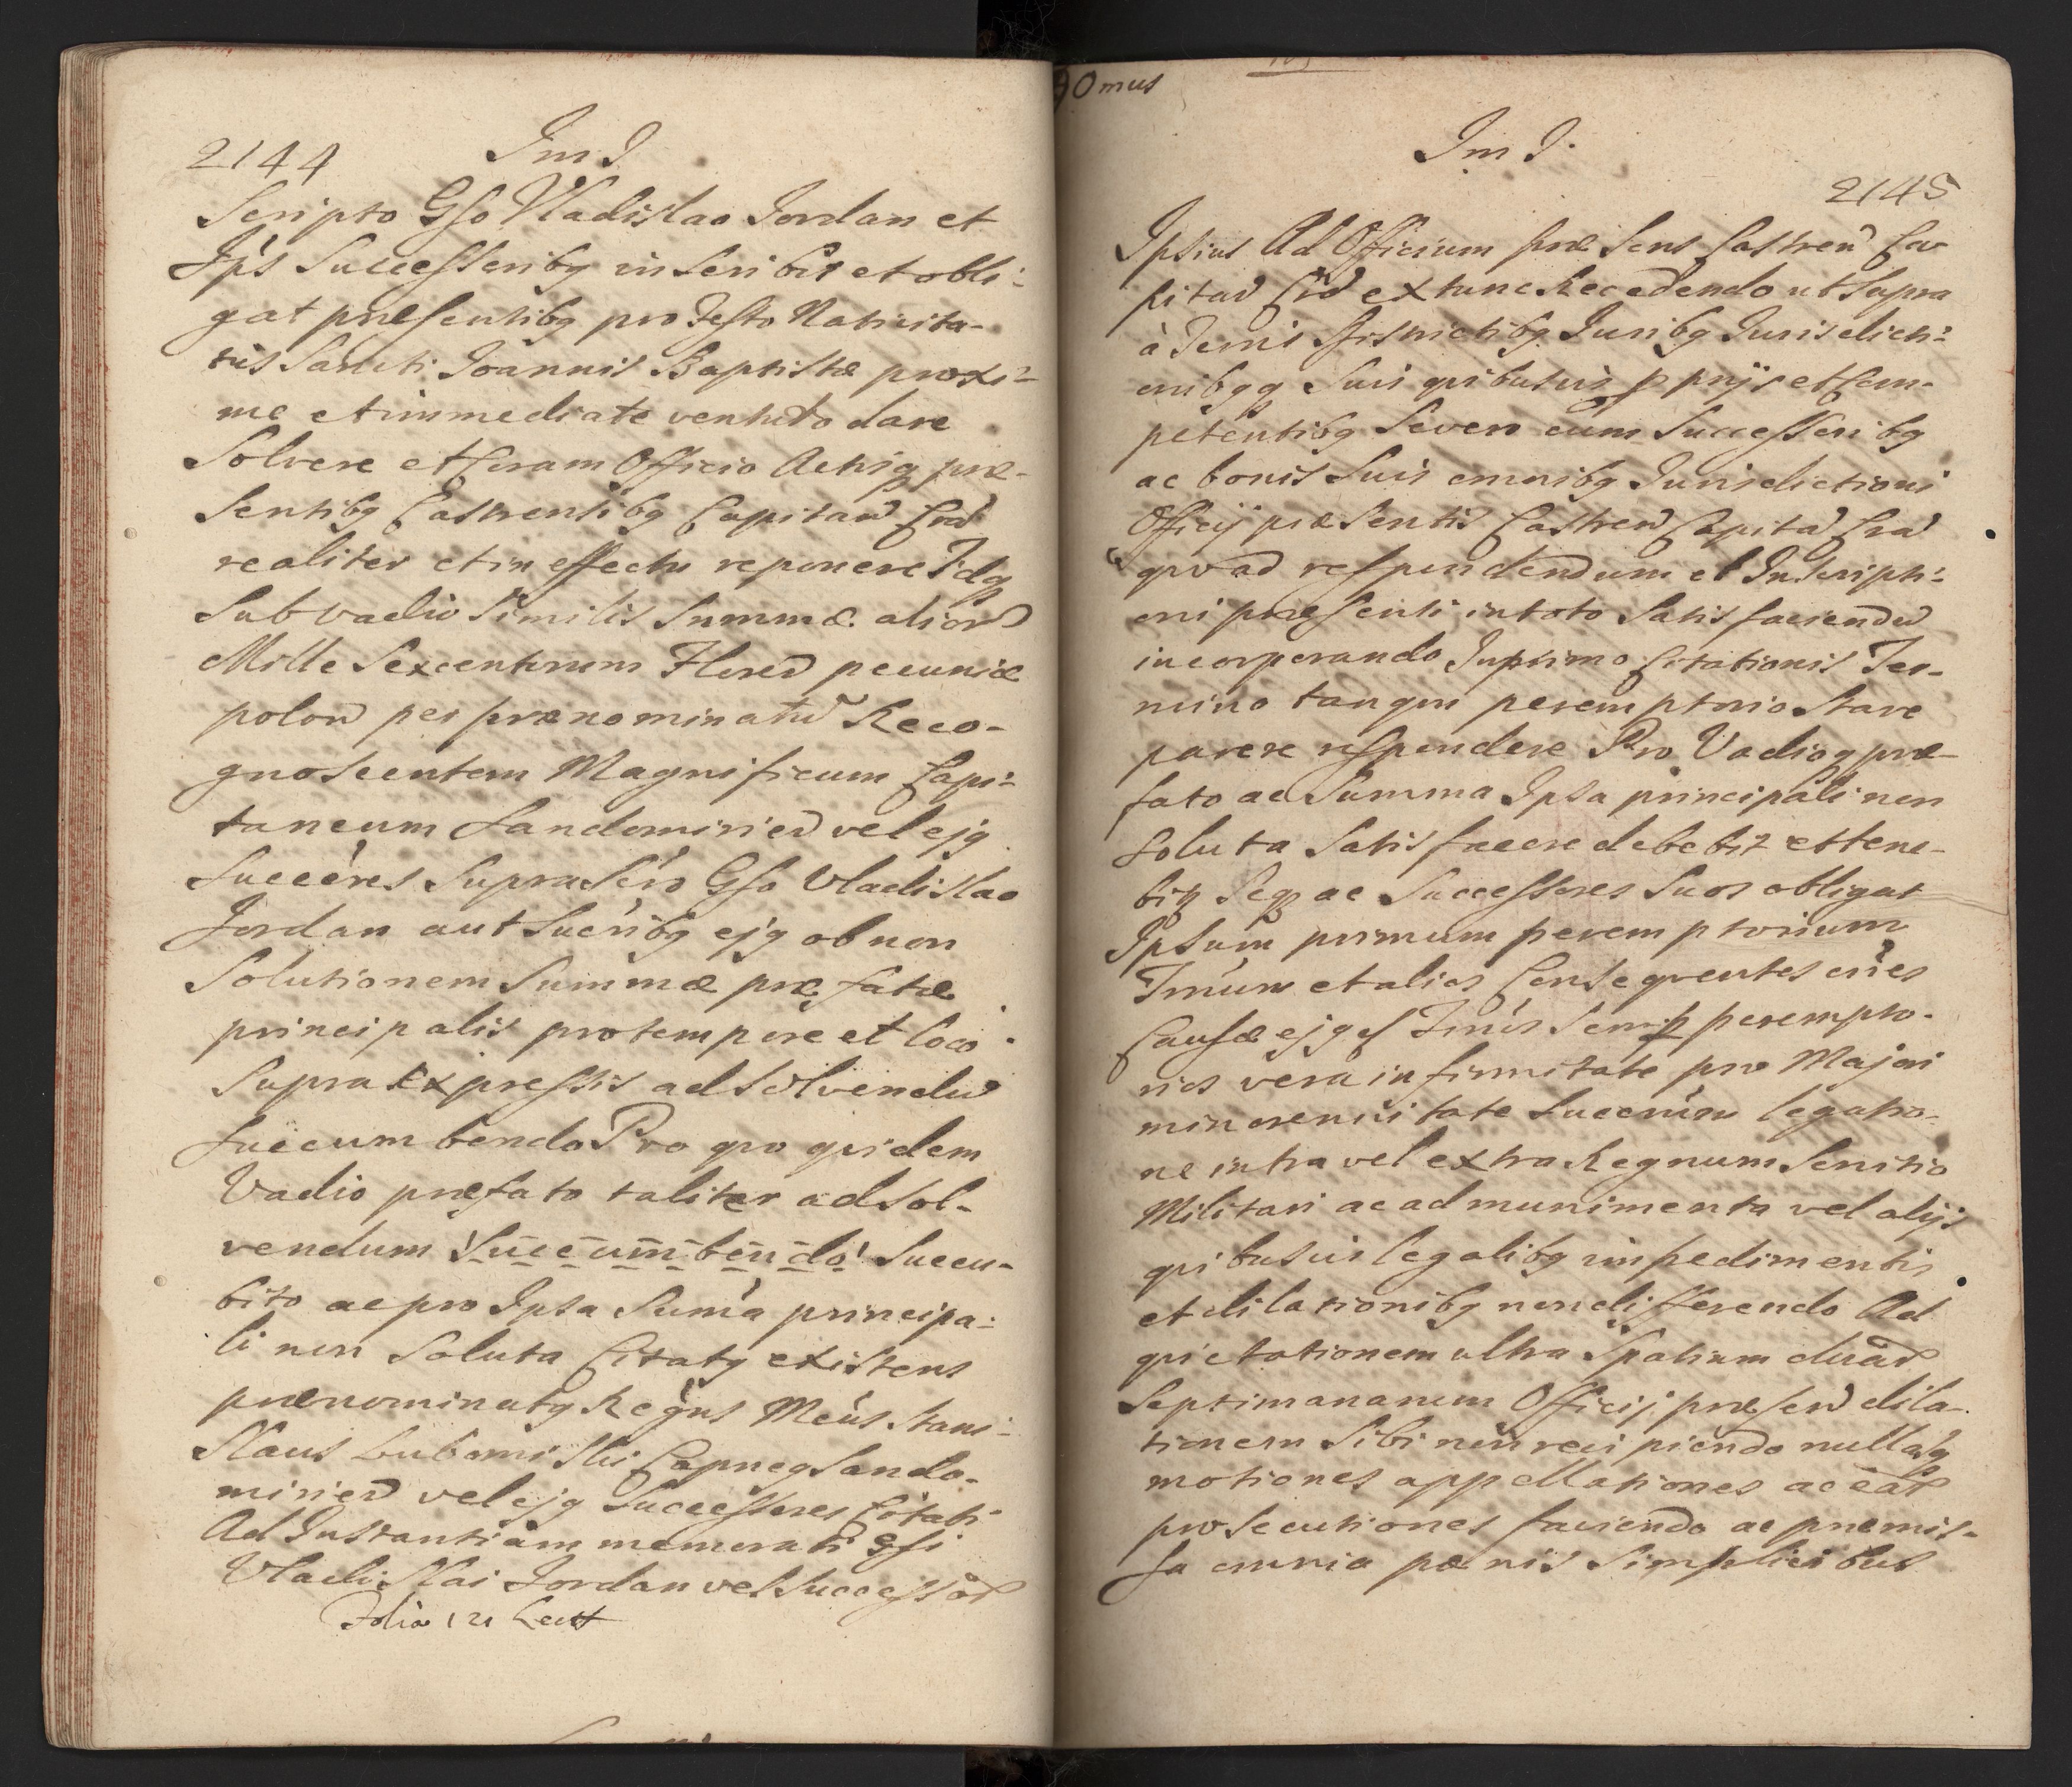 2144
Im J
Scripto Gso Vladislao Jordan et
Ips Successoribq inscribit et obli-
gat præsentibq pro Festo Nativita-
tis Sancti Joannis Baptistæ proxi-
me et immediate venturo dare
Solvere et Coram Officio Actisq præ-
sentibq Castrensibq Capitan Crac
realiter et in effectu reponere Idq
Sub vadio Similis Summæ alior
Mille Sexcentorum Floren pecuniæ
polon per prænominatu Reco-
gnoscentem Magnificum Capi-
taneum Sandomirien vel ejq
Succeres Suprascro Gso Vladislao
Jordan aut Sucribq ejq ob non
Solutionem Summæ præfatæ
principalis pro tempore et loco
Supra Expressis ad Solvendu
Succumbendo Pro quo quidem
Vadio præfato taliter ad sol-
vendum Succumbendo Succu-
bito ac pro Ipsa Suma principa-
li non Soluta Citatq existens
prænominatq Regns Meus Stani-
slaus Lubomirski Capneq Sando-
mirien vel ejq Successores Citati
Ad Instantiam memorati Gsi
Vladislai Jordan vel Successor
Folia 121
Omus
Im J.
2145
Ipsius Ad Officium præsens Castren Ca-
pitan Crac ex tunc Recedendo ut supra
à Terris Districtibq Juribq Jurisdicti-
onibqq Suis quibusvis ppriis et Com-
petentibq Seve cum Successoribq
ac bonis Suis omnibq Jurisdictioni
Officij præsentis Castren Capita Crac
quoad respondendum et Inscripti-
oni præsenti in toto Satisfaciendu
incorporando In primo Citationis Ter-
mino tanqm peremptorio Stare
parere respondere Pro Vadioq præ-
fato ac Summa Ipsa principali non
Soluta Satisfacere debebit et tene-
bit Seq ac Successores Suos obligat
Ipsum primum peremptorium
Tmum et alios Consequentes oies
Causæ ejqs Tmos Semp perempto-
rios vera infirmitate pro Majori
minorennitate Succerum legatio-
ne intra vel extra Regnum Servitio
Militari ac ad munimenta vel alijs
quibusvis legalibq impedimentis
et dilationibq non differendo Ad
quietationem ultra Spatium duar
Septimanarum Officij præsen dila-
tionem Sibi non recipiendo nullasq
motiones appellationes ac ear
prosecutiones faciendo ac præmis-
sa omnia pænis Simplicibus